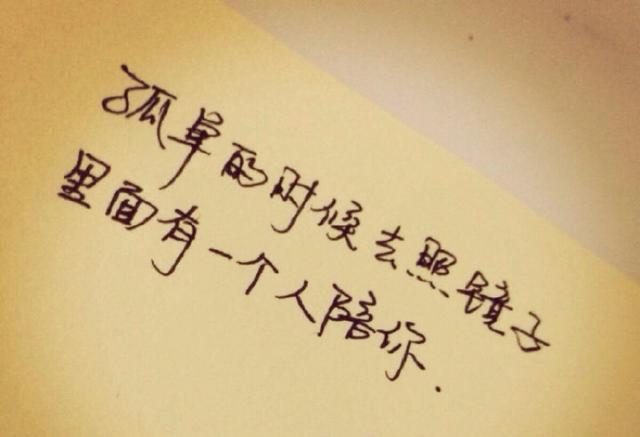 孤单的时候去照镜子
里面有一个人陪你.